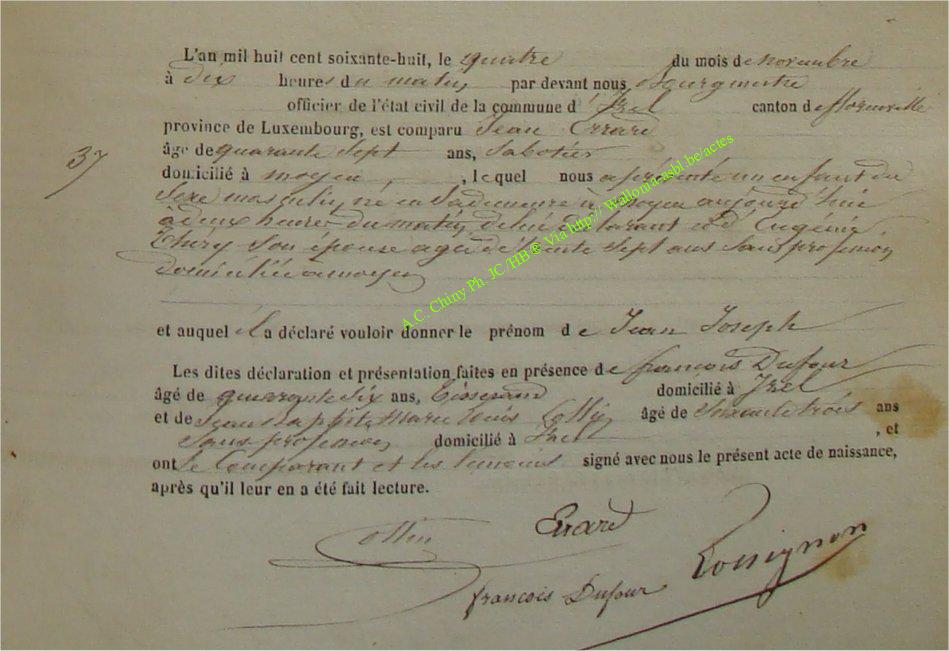 L'an mil huit cent soixante-huit, le quatre du mois de novembre
à dix heures du matin par devant nous Bourgmestre
officier de l'état civil de la commune d'Izel canton de florenville
province de Luxembourg, est comparu Jean Errard
âgé de quarante sept ans, Sabotier
37
domicilié à moyen, lequel nous a présenté un enfant du
Sexe masculin, né en Sa demeure à moyen aujourd'hui
a deux heures du matin, de lui déclarant et d'Eugénie
Thiry Son épouse agée de trente Sept ans Sans profession
domiciliée a moyen
et auquel il a déclaré vouloir donner le prénom de Jean Joseph
Les dites déclaration et présentation faites en présence de françois Dufour
âgé de quarante Six ans, Tisserand domicilié à Izel
et de Jean Baptiste Marie Louis Collin âgé de Soixante trois ans
Sans profession domicilié à Izel, et
ont le Comparant et les témoins signé avec nous le présent acte de naissance,
après qu'il leur en a été fait lecture.
Collin Erard
françois Dufour Rossignon
A.C. Chiny Ph. JC /HB® Via http:// Wallonia-asbl.be/actes